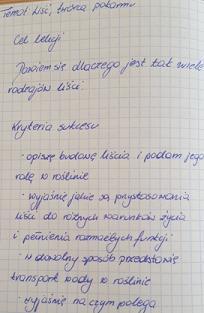 Temat: Liść, twórca pokarmu
Cel lekcji
Dowiem się dlaczego jest tak wiele
rodzajów liści.
Kryteria sukcesu
· opiszę budowę liścia i podam jego
rolę w roślinie
· wyjaśnię jakie są przystosowania
liści do różnych warunków życia
i pełnienia rozmaitych funkcji
· w dowolny sposób przedstawię
transport wody w roślinie
· wyjaśnię na czym polega